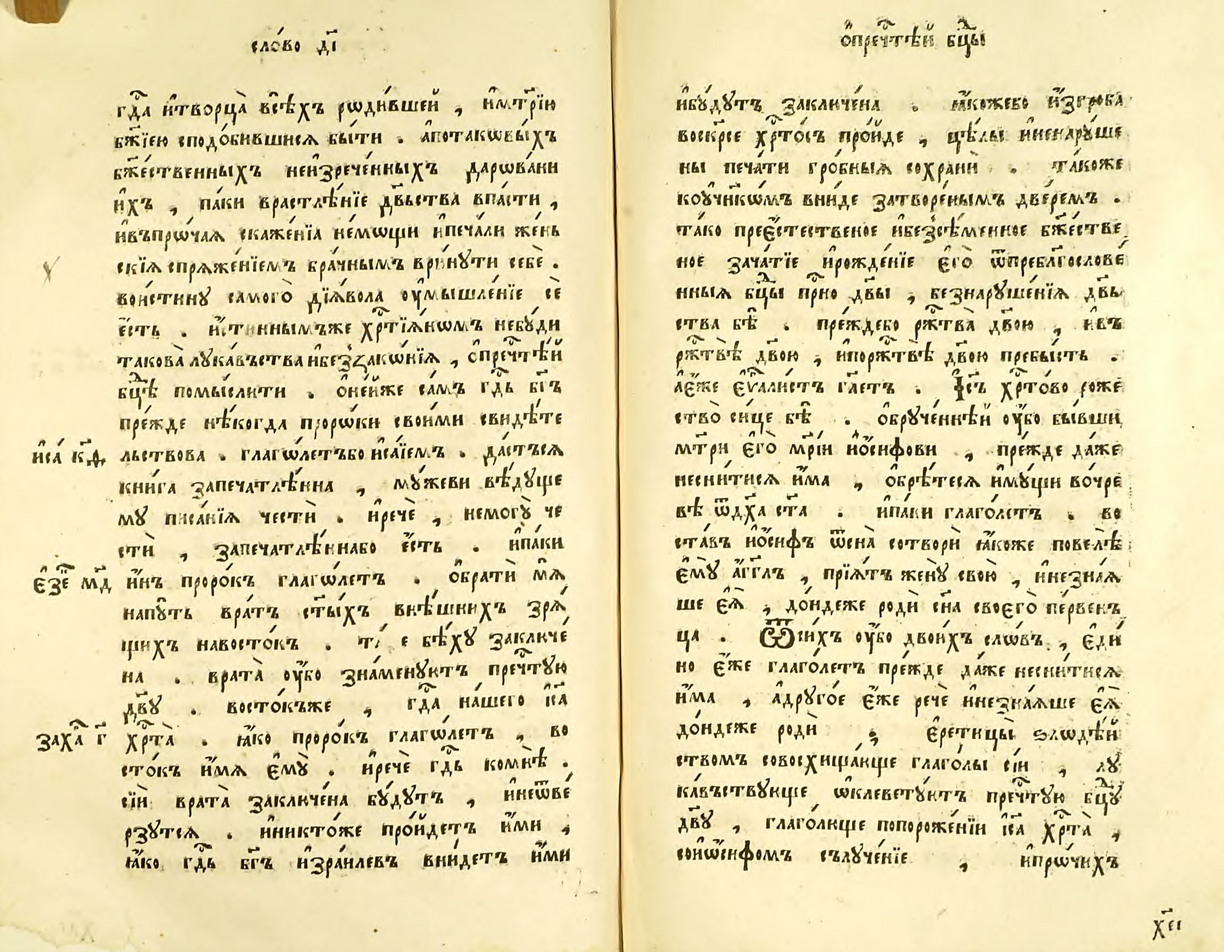 сло́во д҃і
гдⷭ҇а и҆творца̀ всѣ́хъ рѡди́вшей , и҆мт҃рїю
бж҃їею сподо́бившися бы́ти . а҆потакѡвы́хъ
бж҃ественныхъ неи҆зрече́нныхъ дарѡва́ни
и҆хъ , па́ки врастлѣ́нїе дв҃ьства впа́сти ,
и҆въпрѡ́чая скаже́нїа не́мощи и҆печа́ли же́нь
скїѧ спрѧже́нїемъ бра́чнымъври́нути себѐ .
вои́стину самого̀ дїѧ́вола оу҆мышле́нїе сѐ
є҆́сть . и҆́стиннымъже хрⷭ҇тїѧ́нѡмъ небу́ди
такова̀ лука́въства и҆беззако́нїѧ , ѡ҆пречⷭ҇тѣй
бц҃ѣ помы́слити . ѡ҆не́йже са́мъ гдⷭ҇ь бг҃ъ
пре́жде нѣ́когда прⷪ҇рѡки свои́ми свидѣ́те
и҆са́ к҃ѳ льствова . глаго́летъбо и҆са́їемъ . да́стъсѧ
кни́га запечатлѣ́нна , му́жеви вѣ́дуще
му писа́нїѧ честѝ . и҆речѐ , немогу̀ че
стѝ , запечатлѣ́ннабо є҆́сть . и҆па́ки
є҆зе м҃д и҆́нъ проро́къ глаго́летъ . ѡ҆братѝ мѧ̀
напу́ть вра́тъ ст҃ы́хъ внѣ́шнихъ зрѧ́
щихъ навосто́къ . бѣ́ху заключе́
на . врата̀ оу҆́бо зна́менуютъ пречⷭ҇тую
дв҃у . восто́къже , гдⷭ҇а на́шего і҆са
заха́ г҃ хрⷭ҇та̀ . ꙗ҆́ко проро́къ глаго́летъ , во
сто́къ и҆́мѧ є҆му̀ . и҆речѐ гдⷭ҇ь комнѣ̀ .
сїѝ врата̀ заключе́на бу́дутъ , и҆неѿве́
рзутсѧ . и҆никто́же про́йдетъ и҆́ми ,
ꙗ҆́ко гдⷭ҇ь бг҃ъ и҆зра́илевъ вни́детъ и҆́ми
ѡ҆пречⷭ҇тѣй бцⷣы
и҆бу́дутъ заключе́на . ꙗ҆́кожебо и҆згро́ба
воскр҃се хрⷭ҇то́съ про́йде , цѣ́лы и҆ненару́ше
ны печа́ти гро́бныѧ сохранѝ . та́коже
коу҆чнкѡ́мъ вни́де затворе́нымъ две́ремъ .
та́ко прее҆сте́ственое и҆безсѣ́менное бж҃естве́
ное зача́тїе и҆рожде́нїе є҆гѡ̀ ѿпребл҃гослове́
нныѧ бц҃ы прⷭ҇но дв҃ы , безнаруше́нїѧ дв҃ь
ства бѣ̀ . пре́ждебо ржⷭ҇тва̀ дв҃ою , и҆въ
ржⷭ҇твѣ̀ дв҃ою , и҆поржⷭ҇твѣ̀ дв҃ою пребы́сть .
а҆є҆́же є҆ѵⷢ҇али́стъ гл҃етъ . І҆съ хрⷭ҇то́во роже
ство̀ си́це бѣ̀ . ѡ҆бруче́ннѣй оу҆́бо бы́вши
мт҃ри є҆гѡ̀ мр҃їи і҆ѡ́сифови , пре́жде да́же
несни́тисѧ и҆́ма , ѡ҆брѣ́тесѧ и҆му́щи вочре́
вѣ ѿдх҃а ст҃а . и҆па́ки глаго́летъ . во
ста́въ і҆ѡ́сифъ ѿсна̀ сотворѝ ꙗ҆́коже повелѣ̀
є҆му̀ а҆́гг҃лъ , прїѧ́тъ жену̀ свою̀ , и҆незна́ѧ
ше є҆ѧ̀ , до́ндеже родѝ сн҃а своего̀ пе́рвенъ
ца . Ѿси́хъ оу҆́бо двои́хъ сло́въ , є҆ди́
но є҆́же глаго́летъ пре́жде да́же несни́тисѧ
и҆́ма , а҆друго́е є҆́же речѐ и҆незна́ѧше є҆ѧ̀
до́ндеже родѝ , є҆рети́цы ѕлѡдѣ́й
ствомъ совосхища́юще глаго́лы сїѝ , лу
ка́въствующе ѡ҆клевету́ютъ пречⷭ҇тую бцⷣу
дв҃у , глаго́люще попороже́нїи і҆са хрⷭ҇та̀ ,
соі҆ѡ́сифомъ сълуче́нїе , и҆прѡ́чихъ
хє҃і